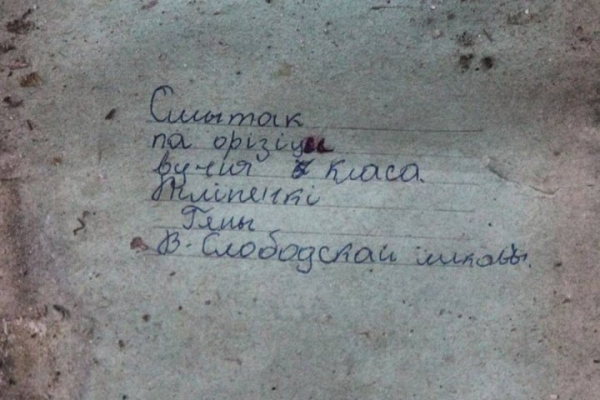 Сшытак
па фізіцы
вуч-ия 8 класа
Піліпенкі
Гены
В-Слободскай школы.